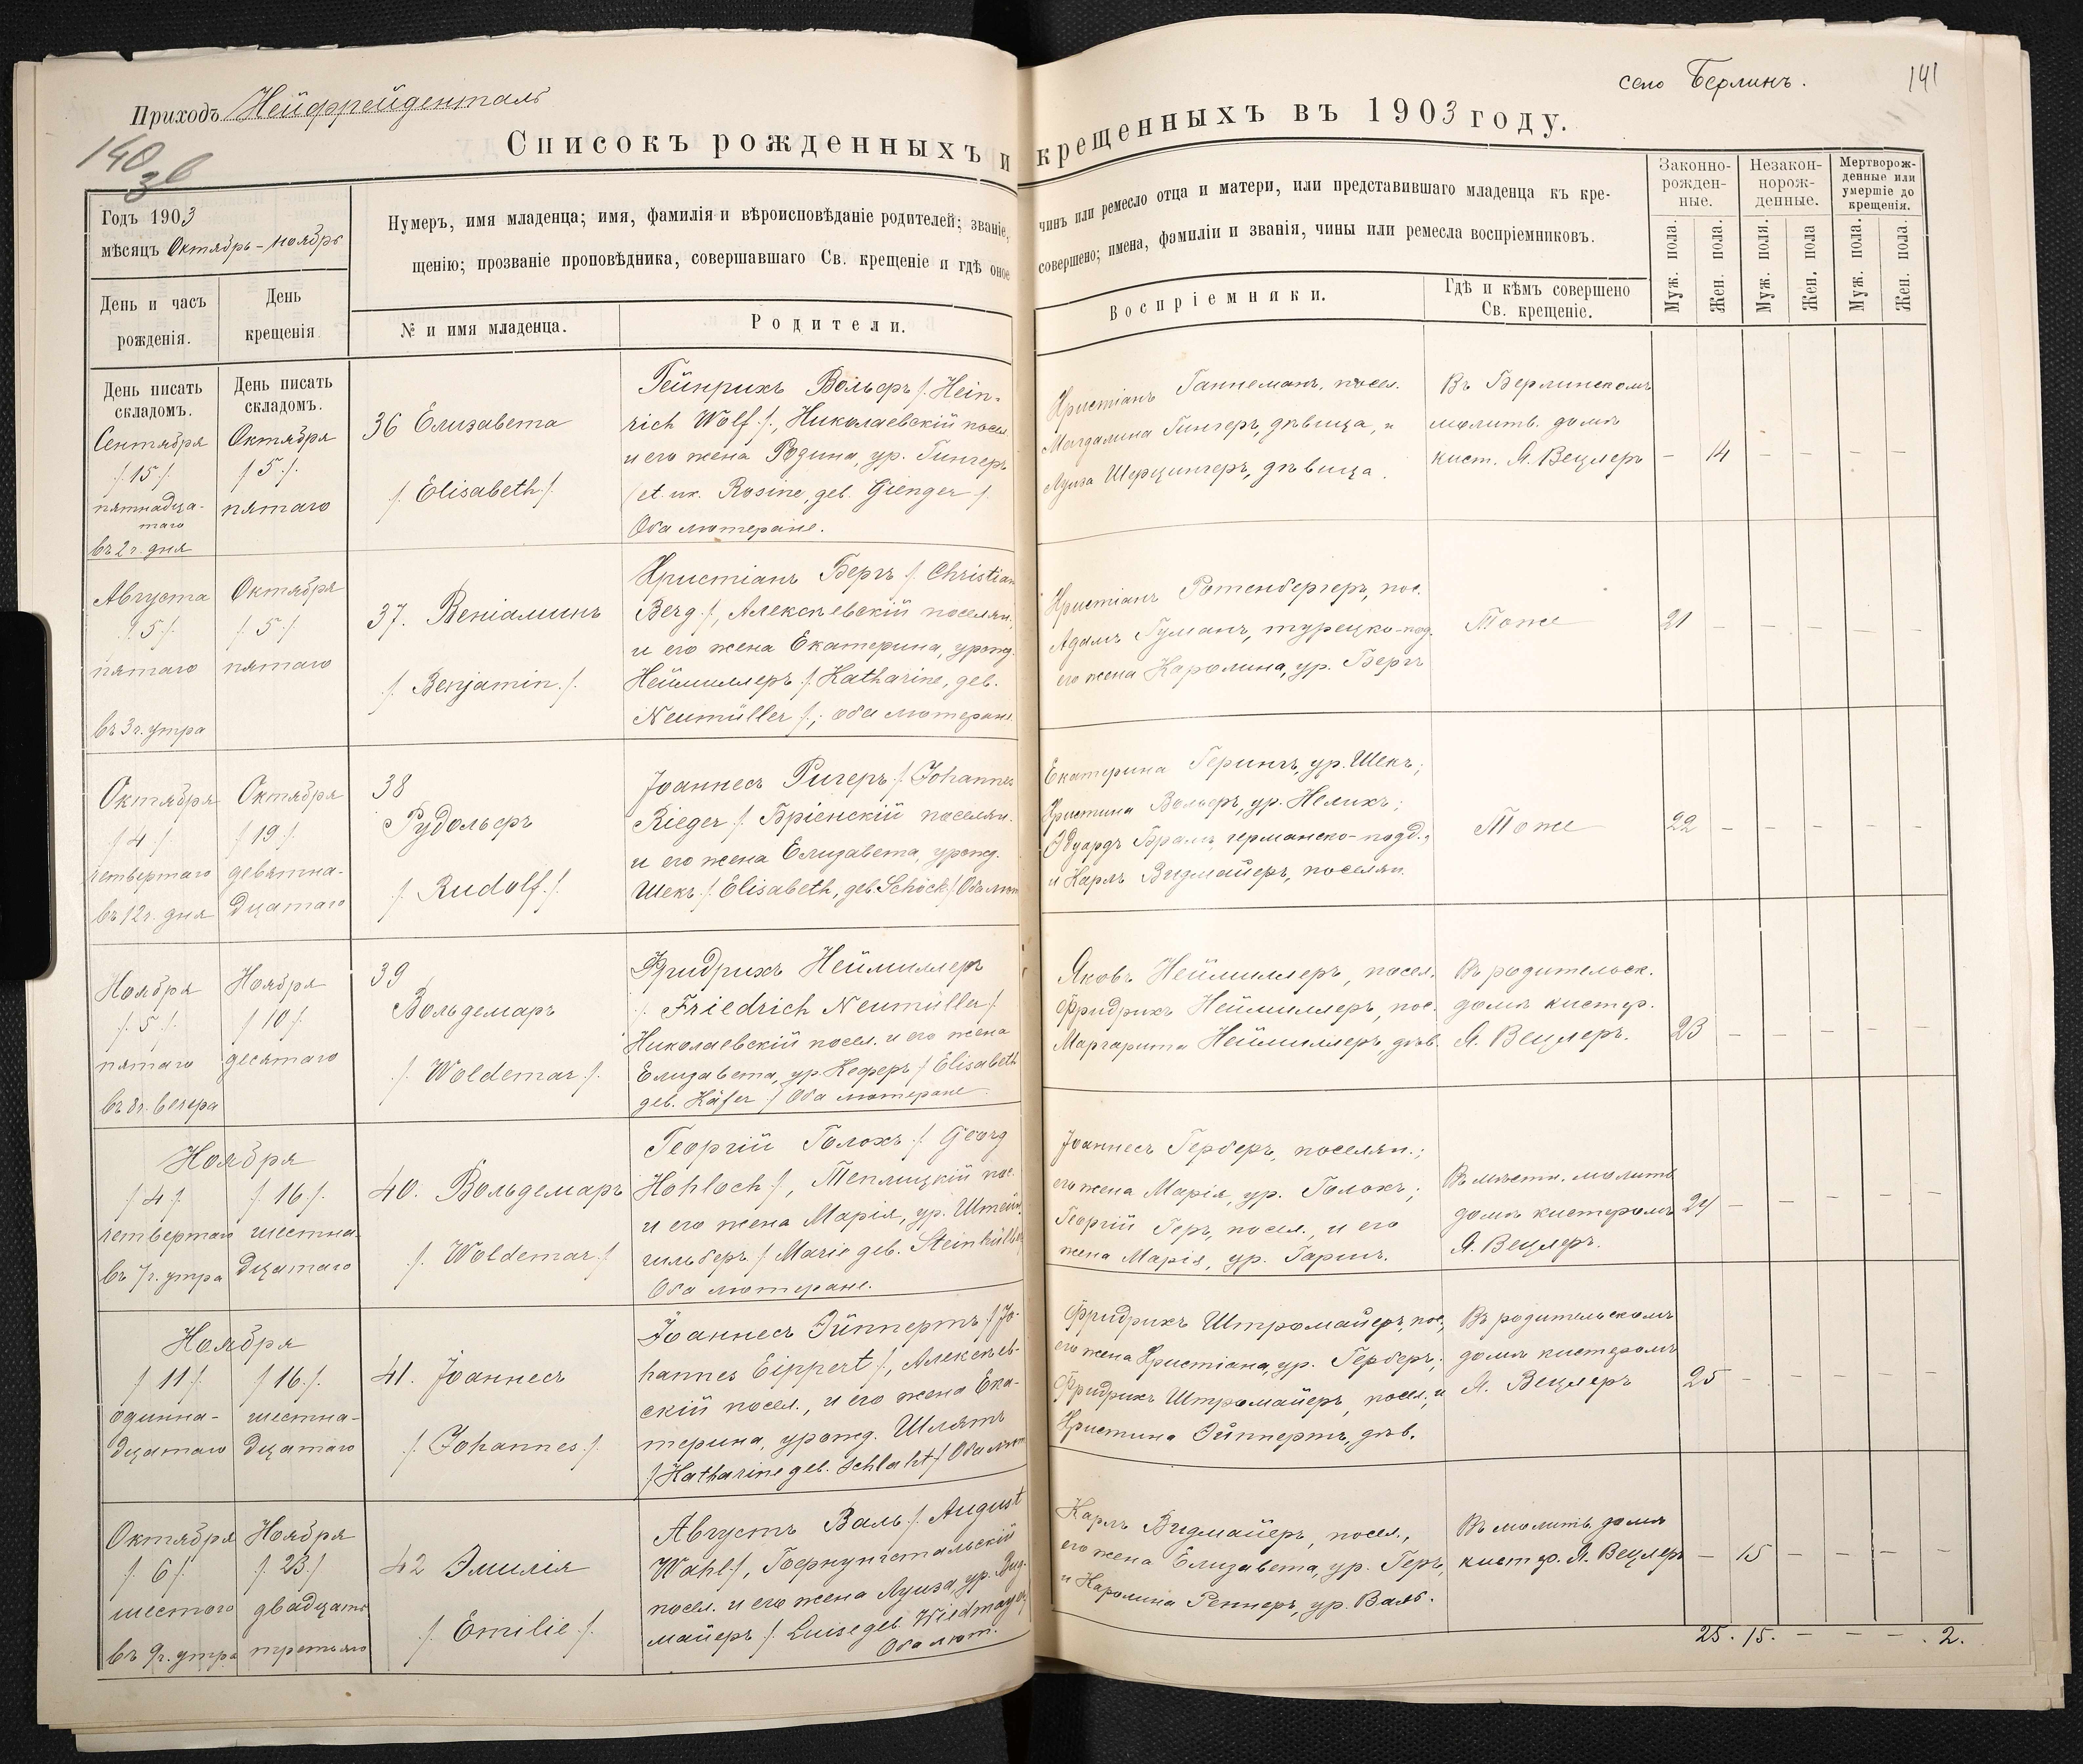 Приходъ Нейфрейденталь
село Берлинъ.
141
140
зв
Списокъ рожденныхъ и крещенныхъ въ 1903 году.
Годъ 1903
мѣсяцъ Октябрь - Ноябрь
Нумеръ, имя младенца; имя, фамилія и вѣроисповѣданіе родителей; званіе, чинъ или ремесло отца и матери, или представившаго младенца къ кре-
щенію; прозваніе проповѣдника, совершавшаго Св. крещеніе и гдѣ оное совершено; имена, фамиліи и званія, чины или ремесла воспріемниковъ.
Законно-
рожден-
ные.
Незакон-
норож-
денные.
Мертворож-
денные или
умершіе до
крещенія.
Муж. пола.
Жен. пола.
Муж. поля.
Жен. пола
Муж. пола.
Жен. пола.
День и часъ
рожденія.
День
крещенія
№ и имя младенца.
Родители.
Воспріемники.
Гдѣ и кѣмъ совершено
Св. крещеніе.
День писать
складомъ.
День писать
складомъ.
Сентября
/.15./.
пятнадца-
таго
въ 2 ч. дня
Октября
/.5./.
пятаго
36 Елизавета
/. Elisabeth ./.
Гейнрихъ Вольфъ /. Hein-
rich Wolf ./., Николаевскій посел.
и его жена Розина, ур. Гингеръ
Rosine, geb. Gienger ./.
Оба лютеране.
Христіанъ Ганнеманъ, посел.
Магдалина Гингеръ, дѣвица, и
Луиза Шерцингеръ, дѣвица.
Въ Берлинскомъ
молитв. домѣ
кист. Я. Вецлеръ
- 14 - - - -
Августа
/.5./.
пятаго
въ 3 ч. утра
Октября
/.5./.
пятаго
37. Веніаминъ
/. Benjamin ./.
Христіанъ Бергъ /. Christian
Berg ./., Алексѣевскій поселян.,
и его жена Екатерина, урожд.
Неймиллеръ /. Katharine, geb.
Neumüller ./.; оба лютеране.
Христіанъ Ротенбергеръ, пос.
Адамъ Гуманъ, турецко-под.
его жена Каролина, ур. Бергъ
Тоже
21 - - - - -
Октября
/.4./.
четвертаго
въ 12 ч. дня
Октября
/.19./.
девятна-
дцатаго
38
Рудольфъ
/. Rudolf ./.
Іоаннесъ Ригеръ /. Johannes
Rieger ./. Бріенскій поселян.
и его жена Елизавета, урожд.
Шекъ /. Elisabeth, geb. Schöck ./. Оба лют
Екатерина Герингъ, ур. Шекъ;
Христина Вольфъ, ур. Нелихъ;
Эдуардъ Брамъ, германско-подд.,
и Карлъ Видмайеръ, поселян.
Тоже
22 - - - - -
Ноября
/.5./.
пятаго
въ 8 ч. вечера
Ноября
/.10./.
десятаго
39
Вольдемаръ
/. Woldemar ./.
Фридрихъ Неймиллеръ
/. Friedrich Neumüller ./.
Николаевскій посел. и его жена
Елизавета, ур. Кеферъ /. Elisabeth
geb. Käfer ./. Оба лютеране
Яковъ Неймиллеръ, посел.
Фридрихъ Неймиллеръ, пос.
Маргарита Неймиллеръ дѣв.
Въ родительск.
домѣ кистер.
Я. Вецлеръ.
23 - - - - -
Ноября
/.4./.
четвертаго
въ 7 ч. утра
/.16./.
шестна-
дцатаго
40. Вольдемаръ
/. Woldemar ./.
Георгій Голохъ /. Georg
Hohloch ./., Теплицкій пос.
и его жена Марія, ур. Штейн-
гильберъ /. Marie geb. Steinhülber
Оба лютеране.
Іоаннесъ Герберъ, поселян.;
его жена Марія, ур. Голохъ;
Георгій Геръ, посел., и его
жена Марія, ур. Гаринъ.
Въ мѣстн. молитв.
домѣ кистеромъ
Я. Вецлеръ.
24 - - - - -
Ноября
/.11./.
одинна-
дцатаго
/.16./.
шестна-
дцатаго
41. Іоаннесъ
/. Johannes ./.
Іоаннесъ Эйппертъ /. Jo-
hannes Eippert ./., Алексѣев-
скій посел., и его жена Ека-
терина, урожд. Шлятъ
/. Katharine geb. Schlaht ./. Оба лют
Фридрихъ Штромайеръ, пос.,
его жена Христіана, ур. Герберъ;
Фридрихъ Штромайеръ, посел., и
Христина Эйппертъ, дѣв.
Въ родительскомъ
домѣ кистеромъ
Я. Вецлеръ
25 - - - - -
Октября
/.6./.
шестого
въ 9 ч. утра
Ноября
/.23./.
двадцать
третьяго
42 Эмилія
/. Emilie ./.
Августъ Валь /. August
Wahl ./., Гофнунгстальскій
посел. и его жена Луиза, ур. Вид-
майеръ /. Luise geb. Wiedmayer
Оба лют.
Карлъ Видмайеръ, посел.,
его жена Елизавета, ур. Геръ,
и Каролина Реннеръ, ур. Валь.
Въ молитв. домѣ
кистер. Я. Вецлеръ
- 15 - - - -
25. 15. - - - . 2.